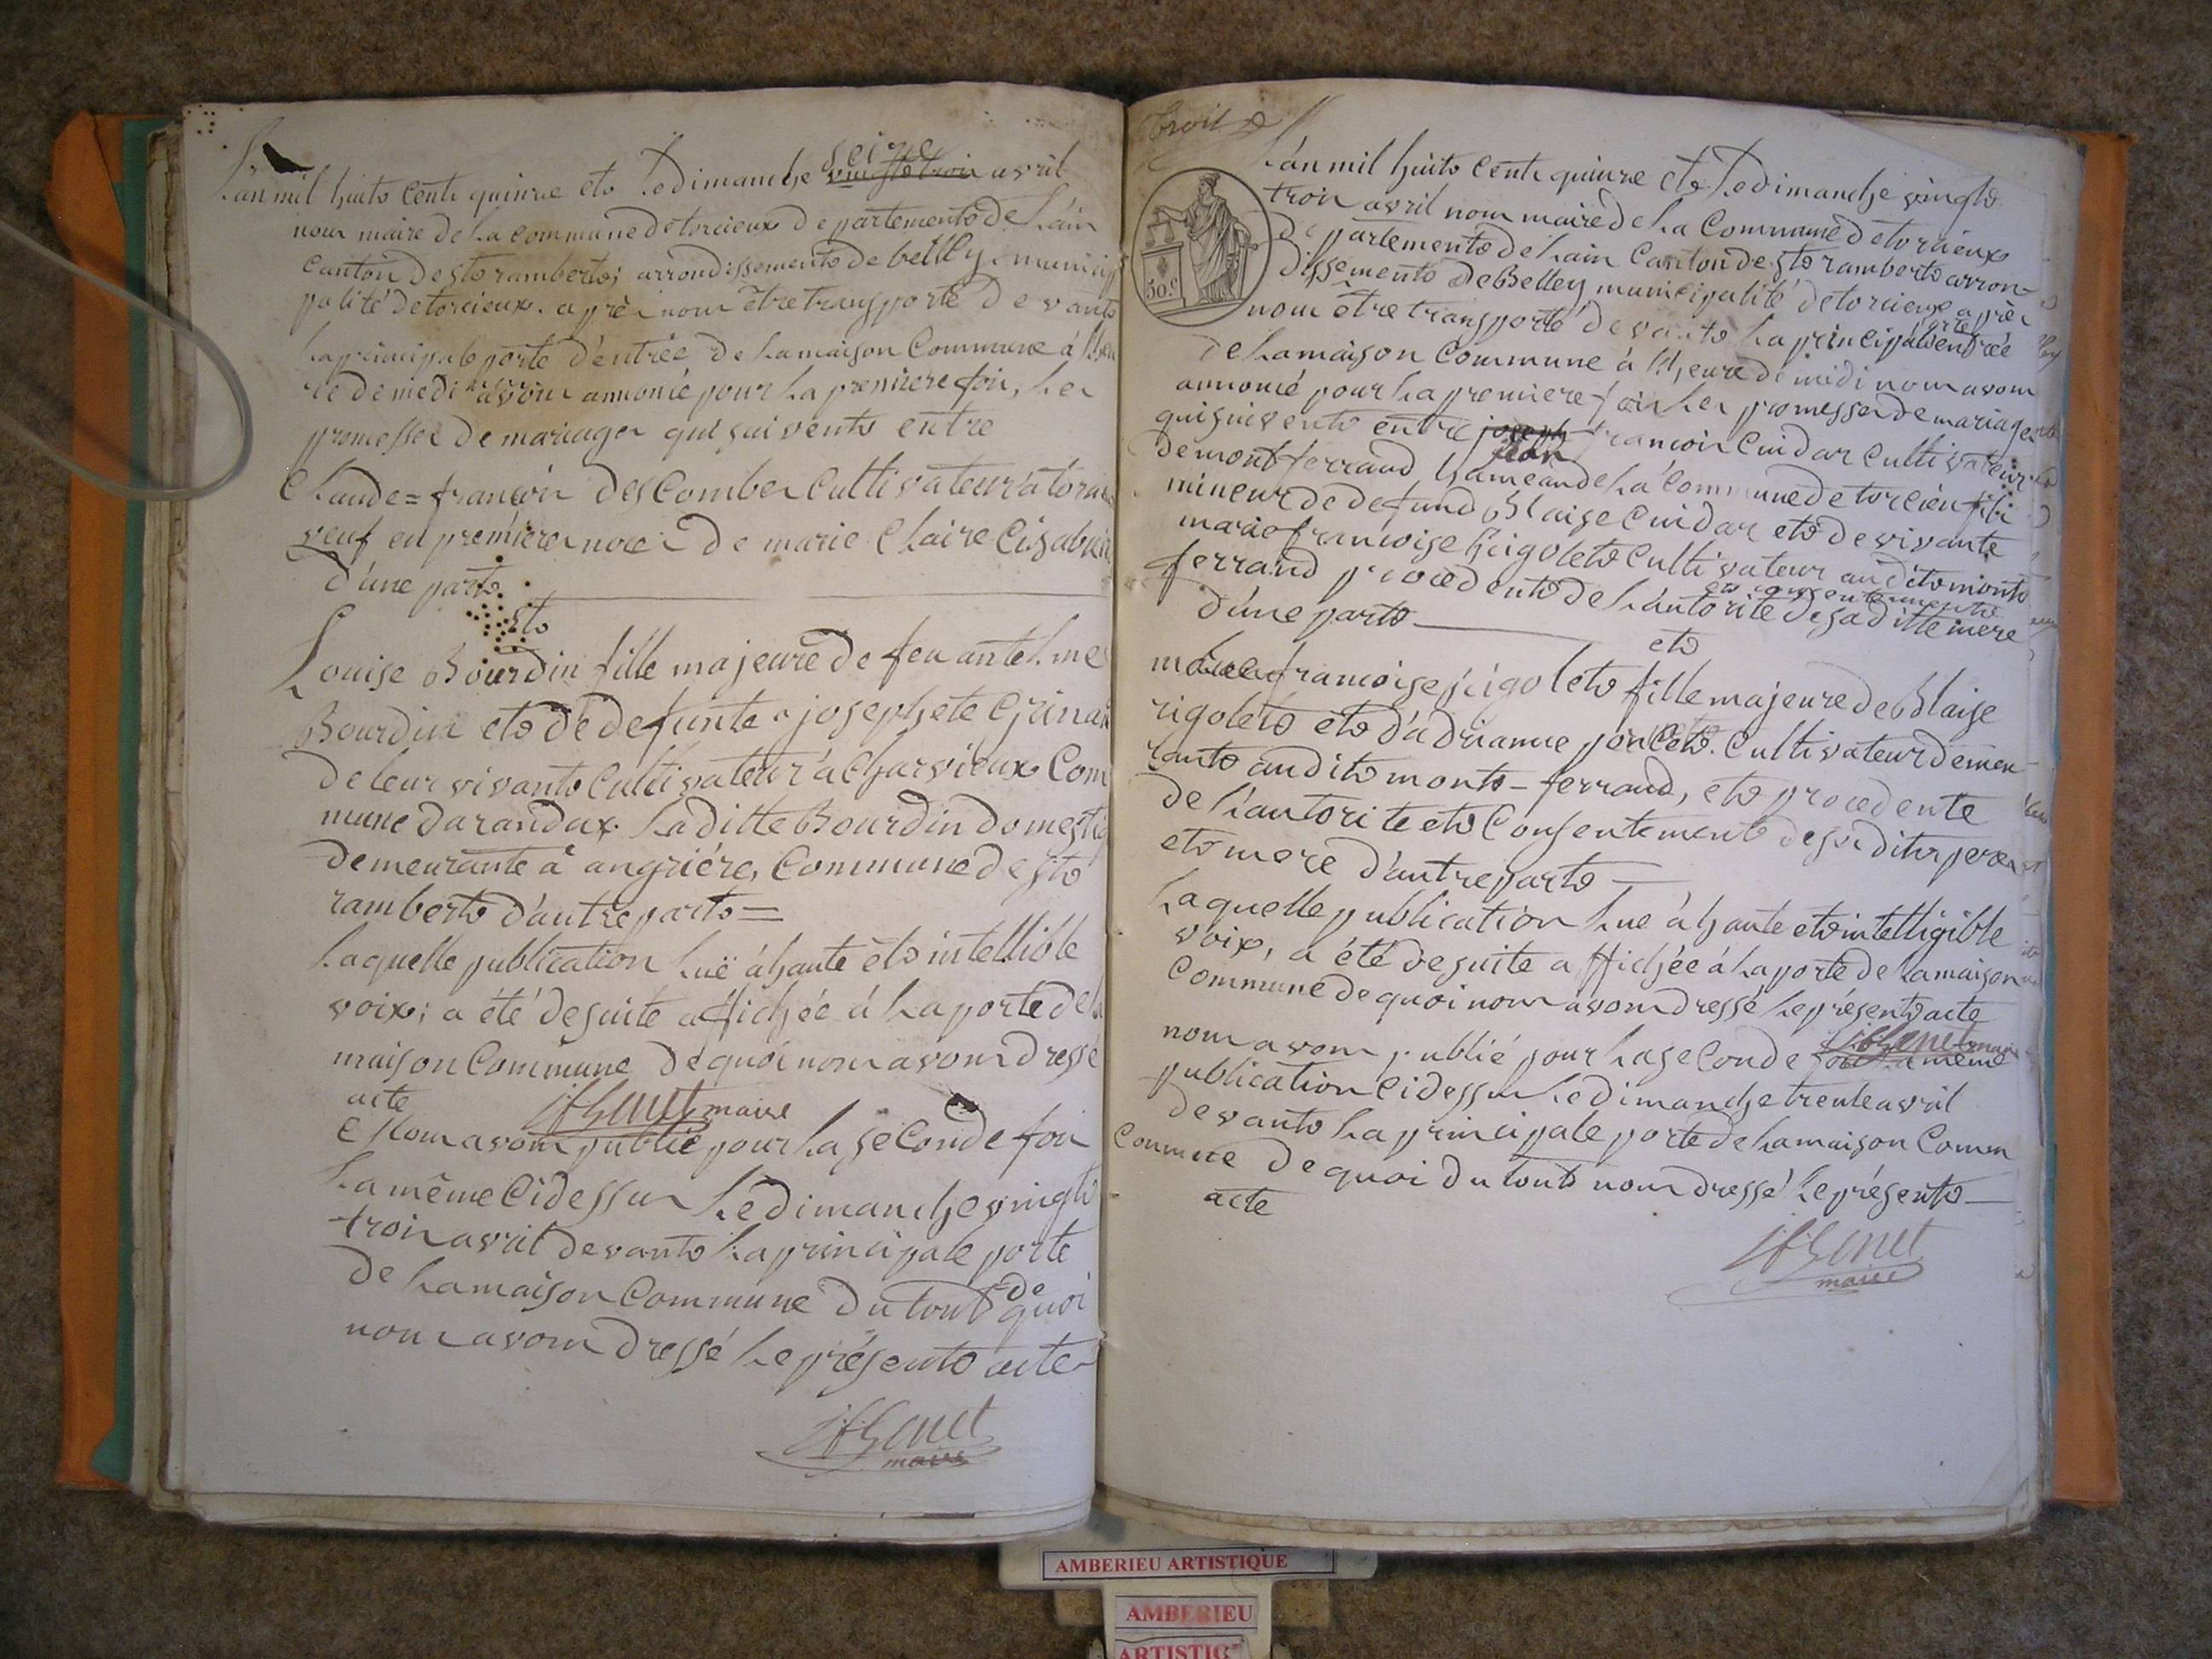 L'an mil huit cents quinze et Le dimanche vingt trois seize avril
nous maire de La commune de torcieux departement de L'ain
canton de st rambert; arrondissement de belley munici
palité de torcieux. après nous être transporté devant
La principale porte d'entrée de La maison Commune à l'heu
re de midi avons annoncé pour La premiere fois, Les
promesses de mariages qui suivent entre
Claude=françois descombes Cultivateur à
veuf en premieres noces de marie Claire
d'une part
Et
Louise Bourdin fille majeure de feu antelme
Bourdin et de defunte josephete Grina
de leur vivant Cultivateur à Charvieux Com
mune darandax. La ditte Bourdin domesti
demeurante à angriére, Commune de st
rambert d'autre part =
Laquelle publication Luë à haute et intellible
voix; a été de suite affichée à La porte de
maison Commune de quoi nous avons dressé
acte
maire
Nous avons publié pour La seConde fois
La même Cidessus Le dimanche vingt
trois avril devant La principale porte
de La maison Commune du tout de quoi
nous avons dressé Le présent acte
maire
L'an mil huit Cents quinze et Le dimanche vingt
trois avril nous maire de La Commune de torcieux
Departement de Lain Canton de st rambert arron-
dissement de Belley municipalité de torcieux après
50 c
nous être transporté devant La principale porte d'entrée
de La maison Commune à l'heure de midi nous avons
annoncé pour La premiere fois Les promesses de mariages
qui suivent entre joseph jean francois Cuidar Cultivateur
de montferrand hameau de La Commune de torcieu fils
mineur de defund Blaise Cuidar et de vivante
marie francoise Rigolet Cultivateur au dit mont
ferrand procedent de L'autorité et consentement de sa ditte mere
d'une part
et
francoise rigolet fille majeure de Blaise
rigolet et d'adrianne poncet. Cultivateur demeu-
rant audit mont-ferrand, et procedente
de L'autorite et Consentement de sesdits pere
et mere d'autre part
Laquelle publication Lue à haute et intelligible
voix, a été de suite affichée à La porte de La maison
Commune de quoi nous avons dressé Le présent acte
nous avons publié pour La seConde fois La même
publication Cidessus Le dimanche trente avril
devant La principale porte de La maison Comm
Commune de quoi du tout nous dressé Le présent
acte
maire
AMBERIEU ARTISTIQUE
AMBERIEU